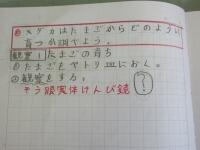 メダカはたまごからどのように
育つか調べよう。
観察1 たまごの育ち
①たまごをペトリ皿におく。
②観察をする。
そう眼実体けんび鏡